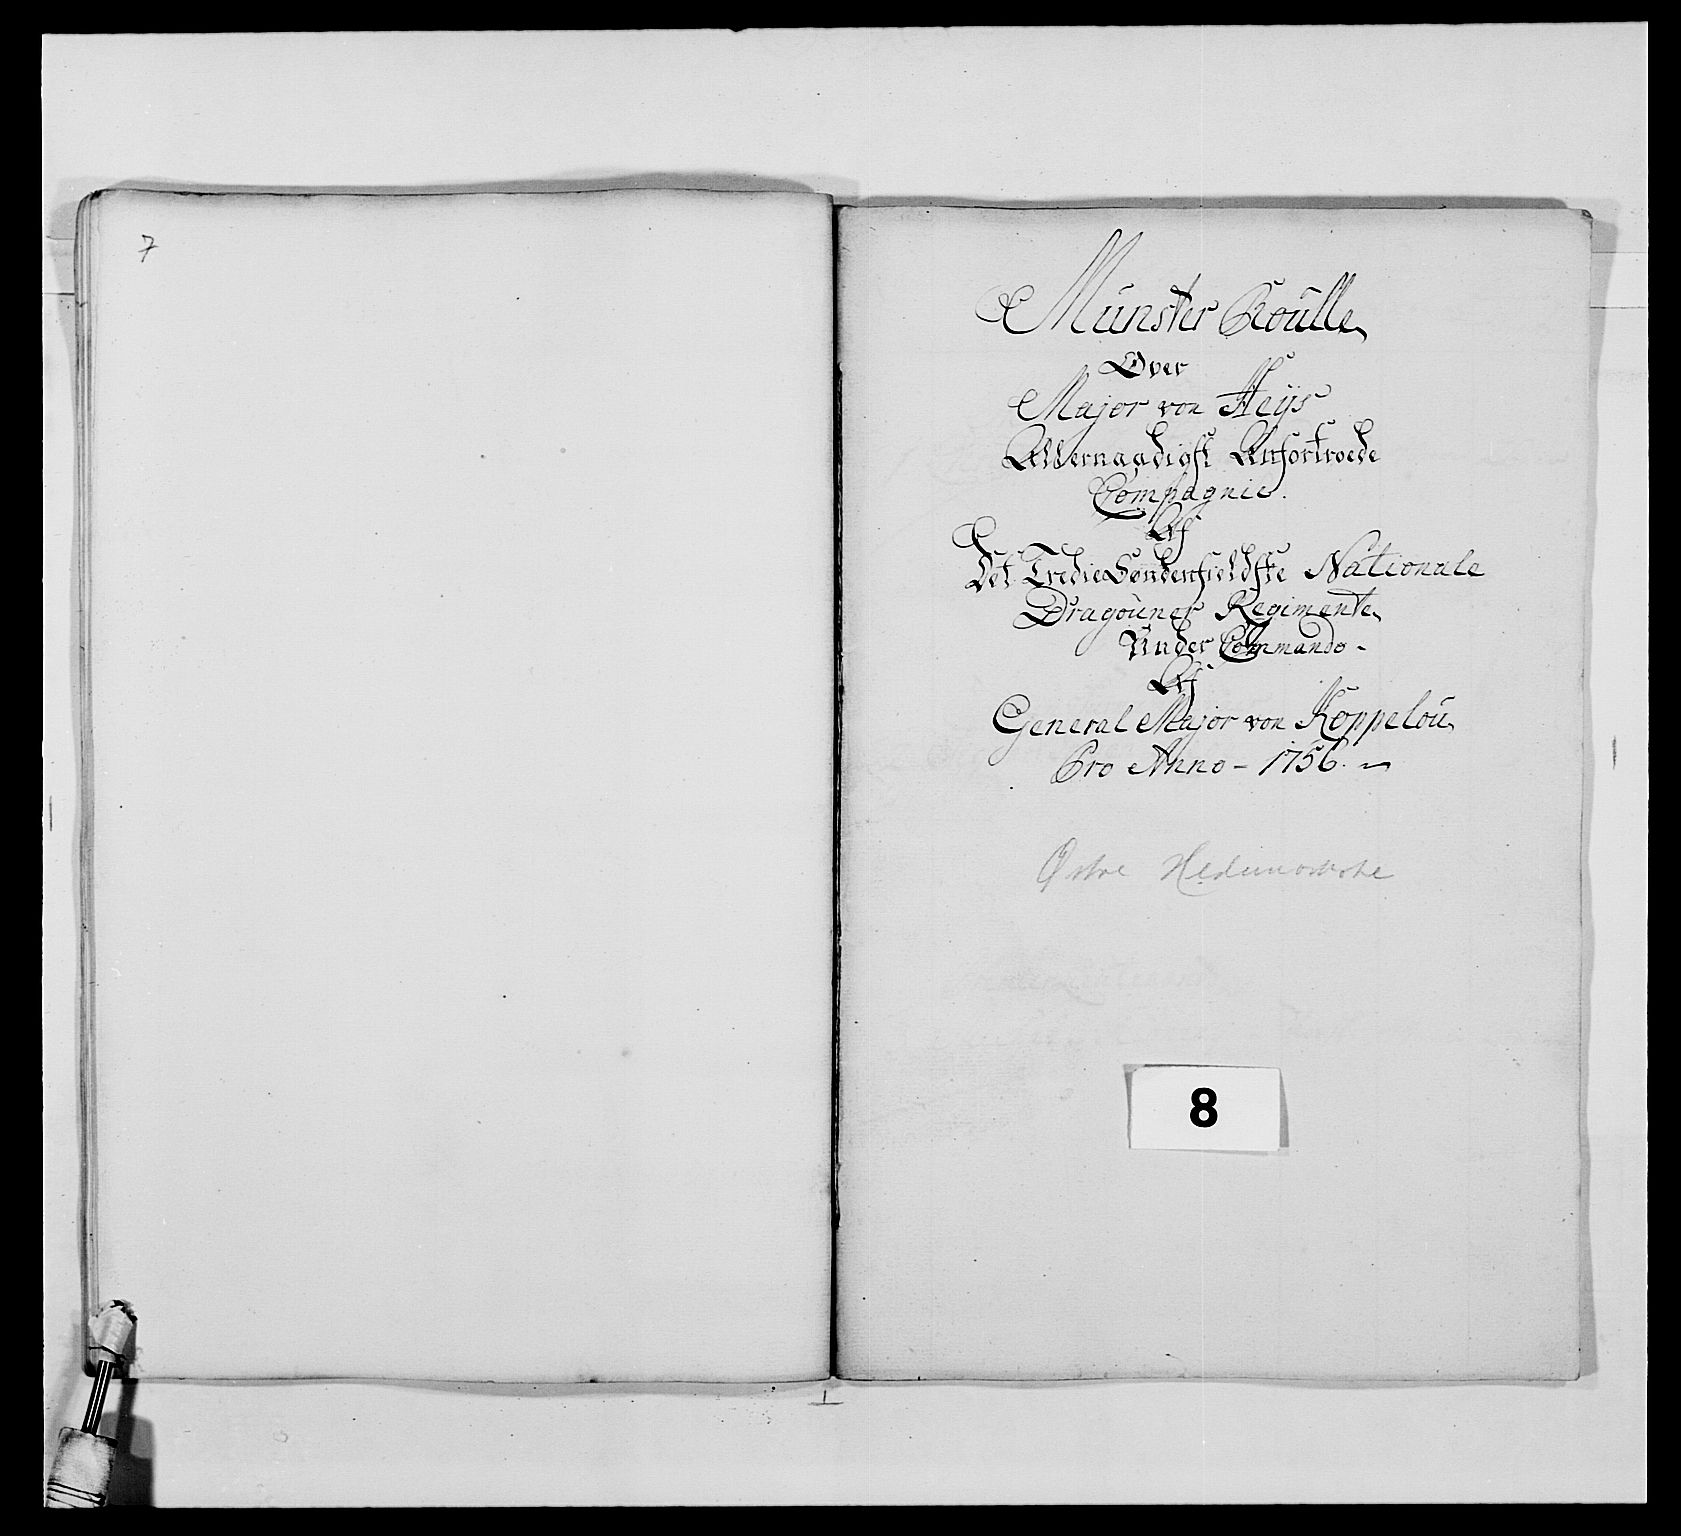 7
Münster Roulle
Over
Major von Heÿs
Allernaadigst Anfortroede
Compagnie.
Af
Det Tredie Søndenfieldske Nationale
Dragouner Regimente
Under Commando -
Af
General Major von Koppelou
Pro Anno - 1756.
Østre Hedemarkske
8